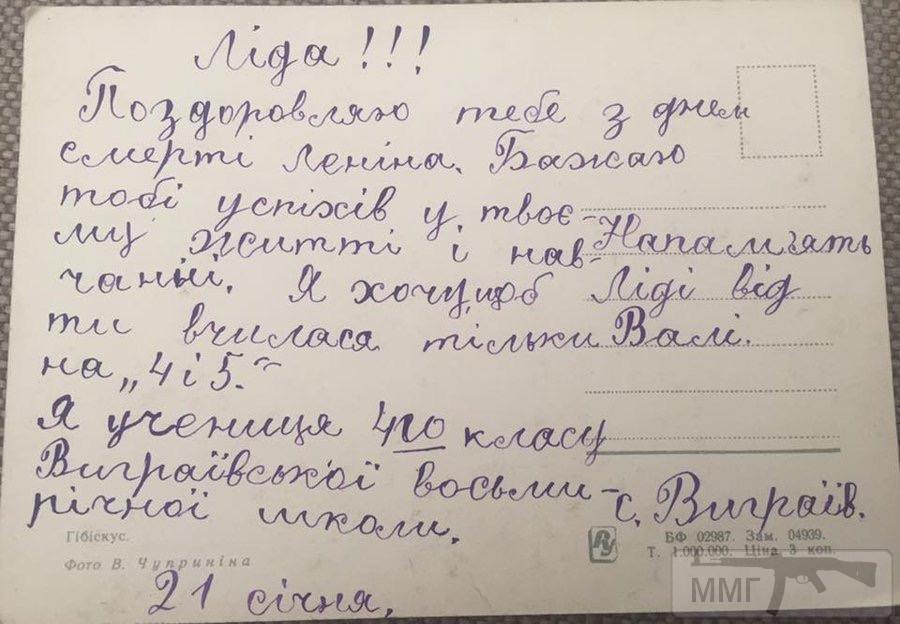 Ліда!!!
Поздоровляю тебе з днем
смерті Леніна. Бажаю
тобі успіхів у твоє-
му житті і нав-
чанні. Я хочу, щоб
ти вчилася тільки
на „4 і 5."
Я учениця 4го класу
Виграївської восьми-
річної школи.
21 січня.
Напам'ять
Ліді від
Валі.
с. Виграїв.
Гібіскус.
Фото В. Чуприніна
РУ
БФ 02987. Зам. 04939.
Т. 1.000.000. Ціна 3 коп.
ММГ